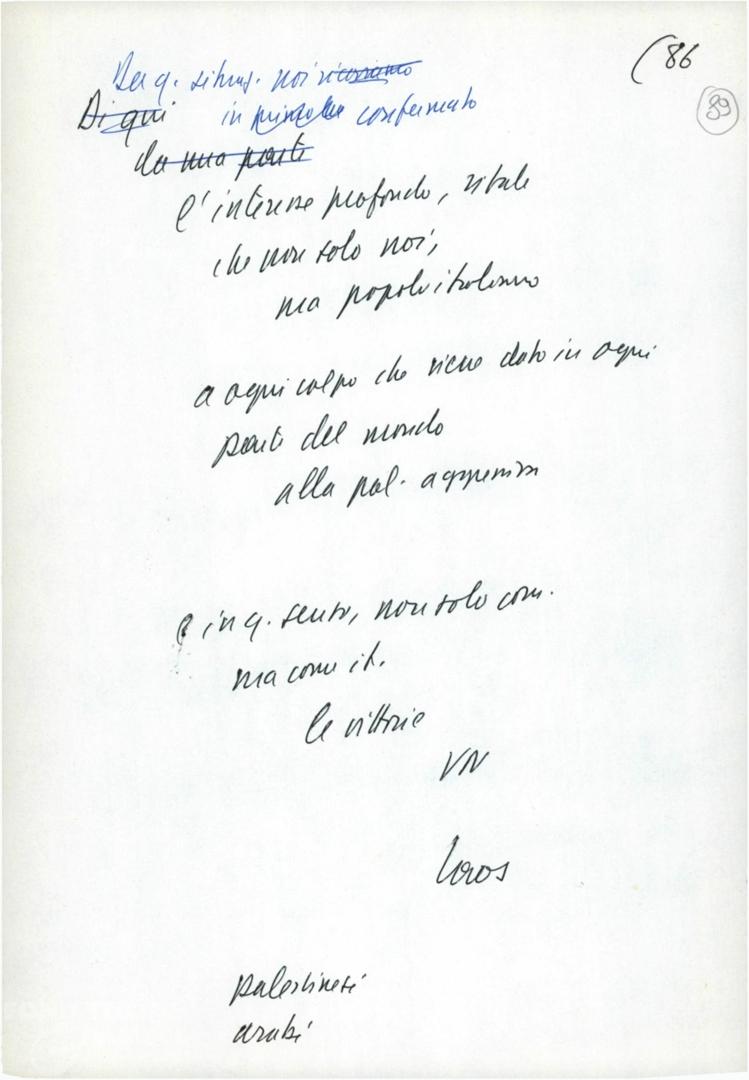 (86
39
Da q. situaz. noi
Di qui in confermato
da una parte
l'interesse profondo, vitale
che non solo noi,
ma popolo italiano
a ogni colpo che viene dato in ogni
parte del mondo
alla pol. aggressiva
e in q. senso, non solo com.
ma come it.
le vittorie
VN
Laos
palestinesi
arabi